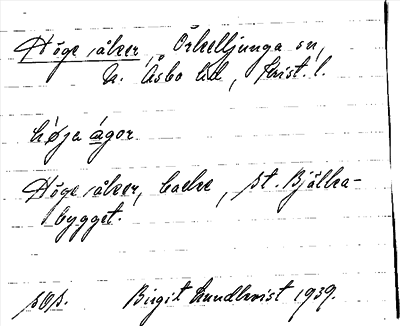 Höge åker, Örkelljunga sn,
N. Åsbo hd, Krist. l.
höja ágor
Höge åker, backe, st. Bjälka-
bygget.
Birgit Lundkvist 1939.